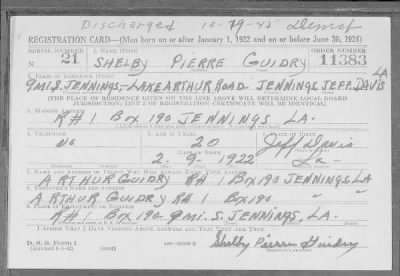 Discharged 10-79-45
REGISTRATION CARD—(Men born on or after January 1, 1922 and on or before June 30, 1924)
SERIAL NUMBER 1. NAME (Print) ORDER NUMBER
N 21 SHELBY PIERRE GUIDRY 11383
2. PLACE OF RESIDENCE (Print)
9 mi. S. JENNINGS-LAKE ARTHUR ROAD JENNINGS JEFF DAVIS LA
[THE PLACE OF RESIDENCE GIVEN ON THE LINE ABOVE WILL DETERMINE LOCAL BOARD
JURISDICTION; LINE 2 OF REGISTRATION CERTIFICATE WILL BE IDENTICAL]
3. MAILING ADDRESS
R#1 BOX 190 JENNINGS LA.
4. TELEPHONE 5. AGE IN YEARS 6. PLACE OF BIRTH
NO 20 Jeff Davis
DATE OF BIRTH
2-9-1922 La
7. NAME AND ADDRESS OF PERSON WHO WILL ALWAYS KNOW YOUR ADDRESS
ARTHUR GUIDRY R#1 BOX 190 JENNINGS, LA
8. EMPLOYER'S NAME AND ADDRESS
ARTHUR GUIDRY R#1 BOX 190 " "
9. PLACE OF EMPLOYMENT OR BUSINESS
R#1 BOX 190 9 mi. S. JENNINGS, LA.
I AFFIRM THAT I HAVE VERIFIED ABOVE ANSWERS AND THAT THEY ARE TRUE.
D. S. S. Form 1 Shelby Pierre Guidry